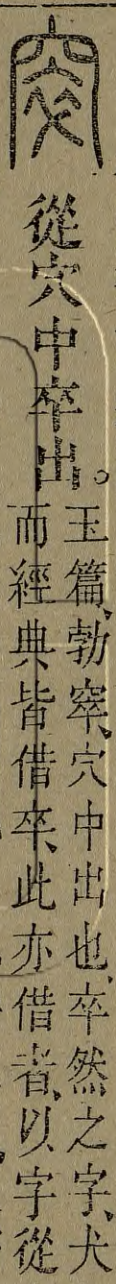 突
從穴中卒出。
玉篇、勃窣、穴中出也、卒然之字、犬
而經典皆借卒、此亦借者、以字從